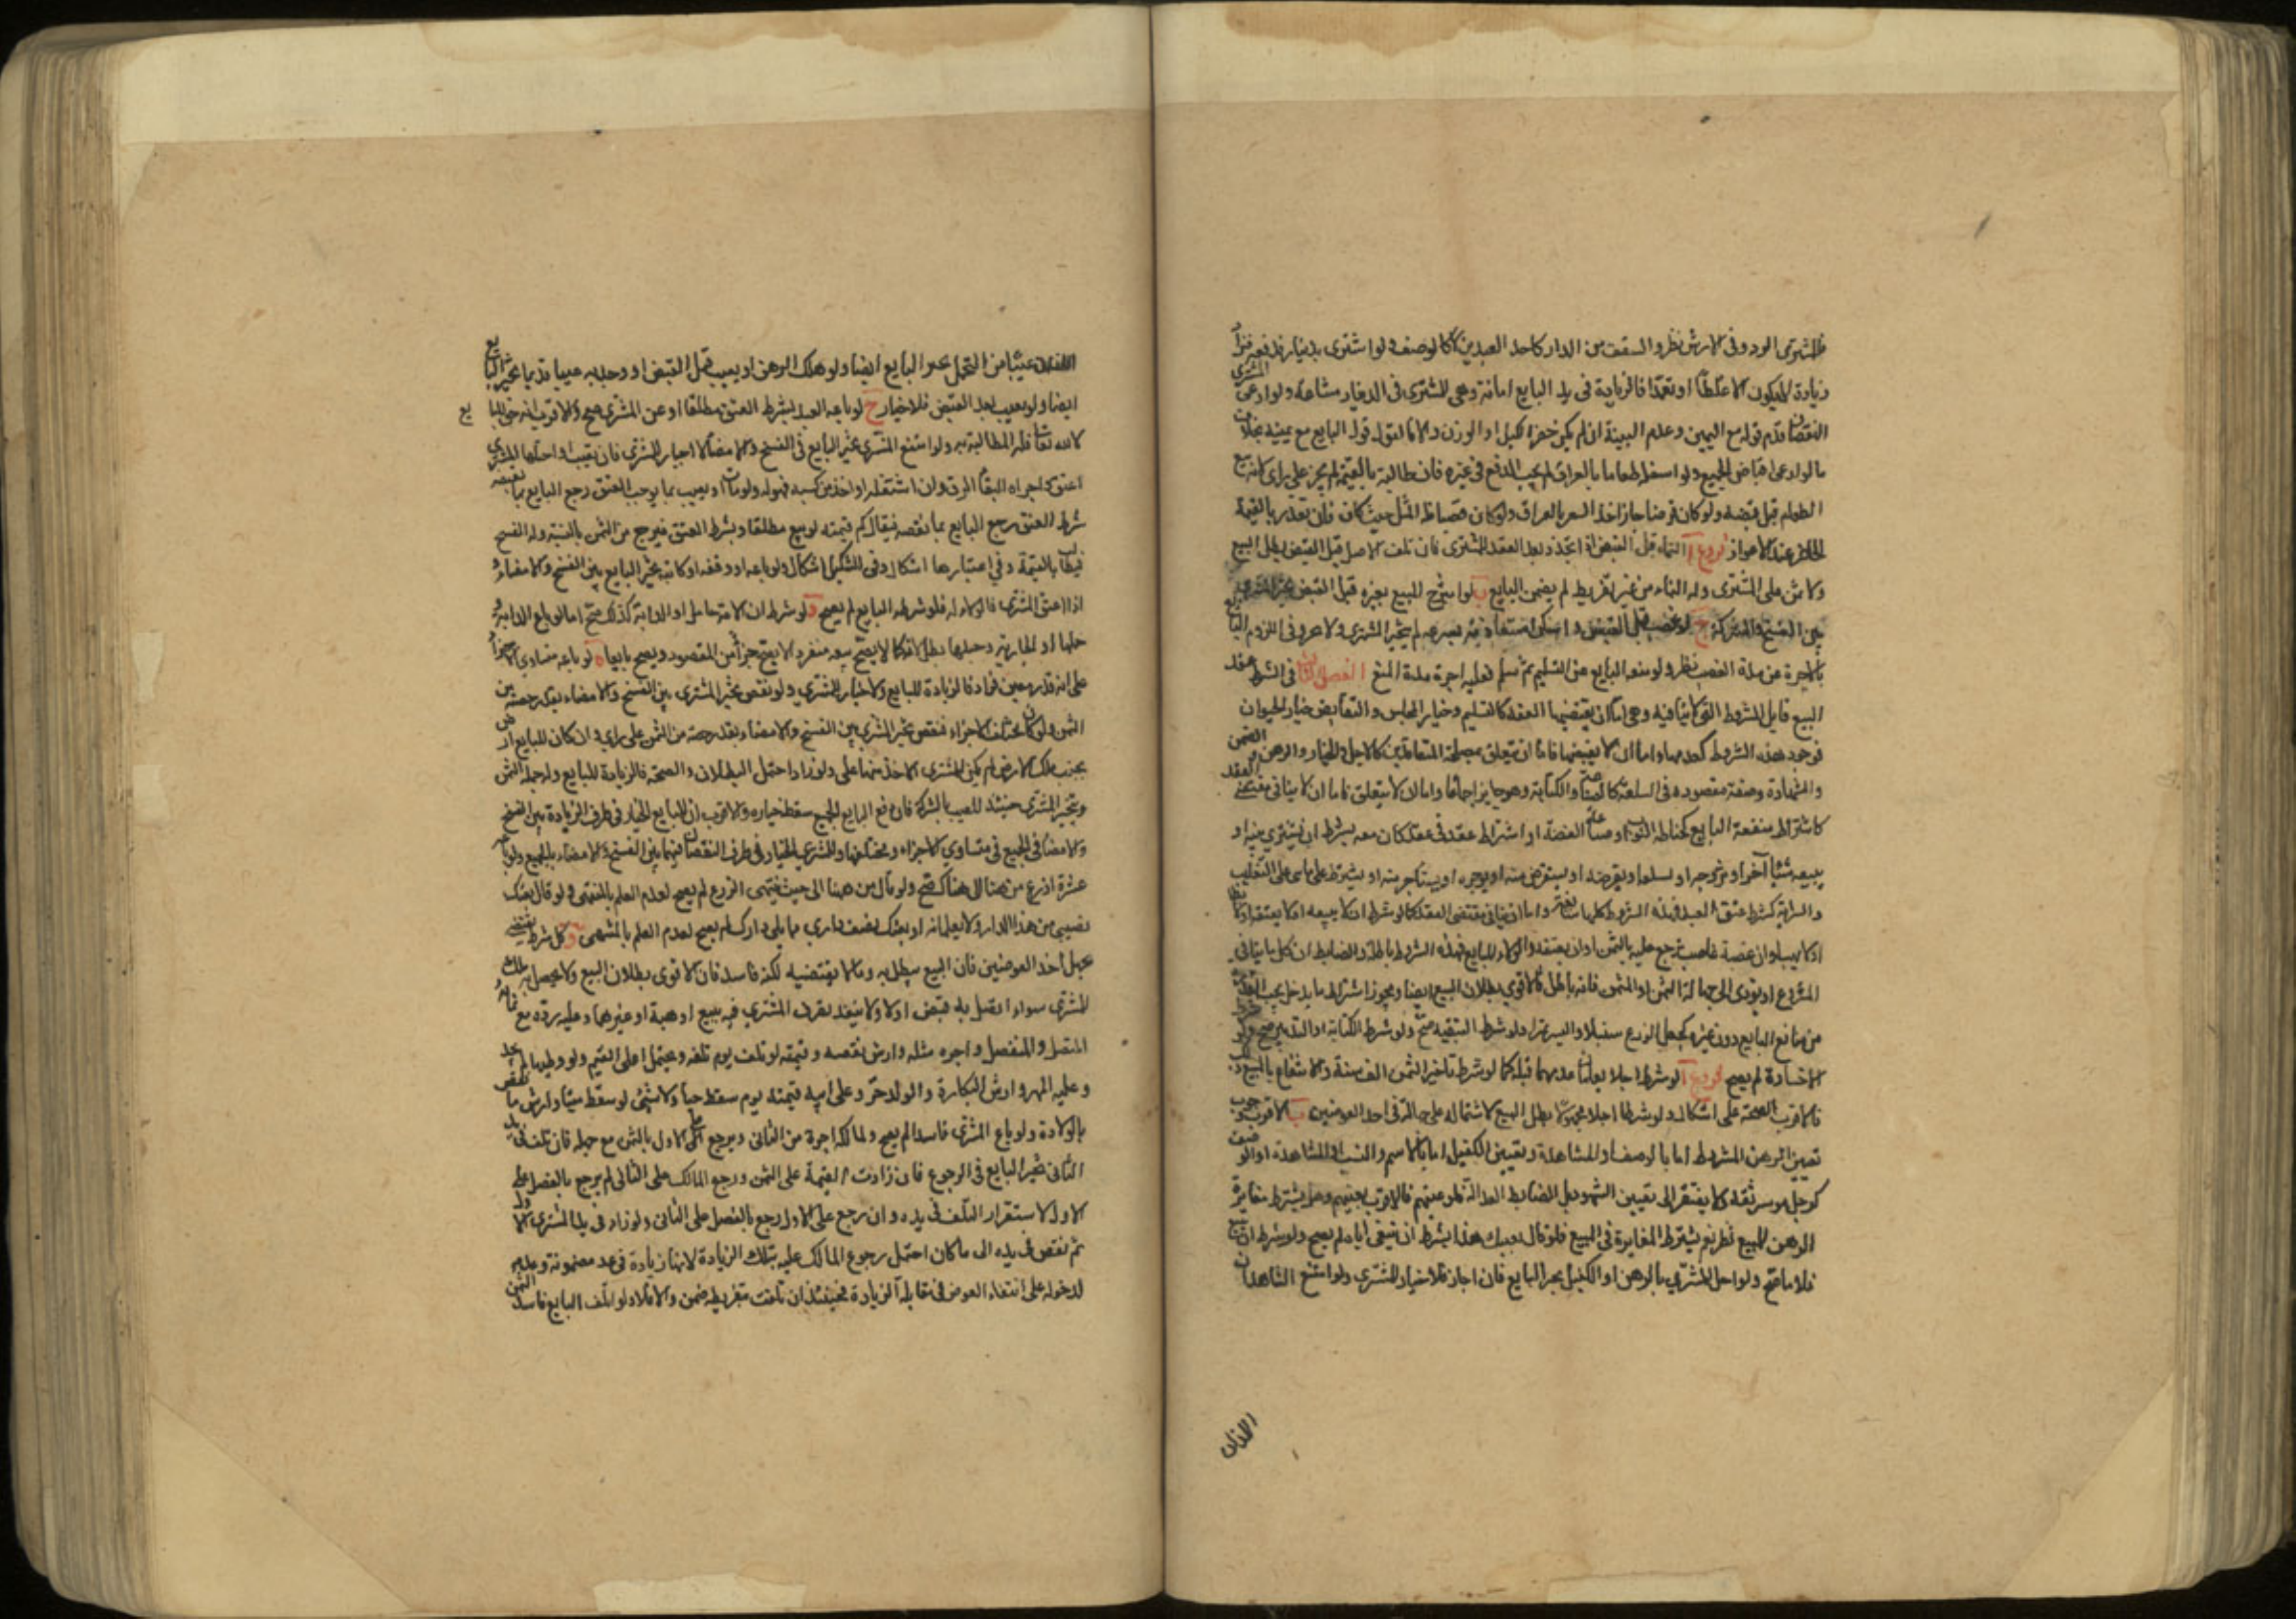 فللمشتري الرد وفي الارش نظر والسقف من الدار كاحد العبدين لا كالوصف ولو اشترى بدينار فدفعه فزاد
زيادة لا يكون الا غلطا او تعمدا فالزيادة في يد البايع امانة وهي للمشتري في الدينار مشاعة ولو ادعى المشتري
النقصان قدم قوله مع اليمين وعدم البينة ان لم يكن حضر الكيل او الوزن والا فالقول قول البايع مع يمينه بخلاف
ما لو ادعى اقباض الجميع ولو اسلف طعاما بالعراق لم يجب الدفع في غيره فان طالبه بالقيمة لم يجز على راي لانه بيع
الطعام قبل قبضه ولو كان قرضا جاز اخذ السعر بالعراق ولو كان غصبا فله المثل حيث كان فان تعذر فالقيمة
الحاضر عند الاعواز فروع آ النماء قبل القبض اذا تجدد بعد العقد للمشتري فان تلف الاصل قبل القبض بطل البيع
ولا ثمن على المشتري وله النماء من غير تفريط لم يضمن البايع ب لو امتزج المبيع بغيره قبل القبض تخير المشتري
بين الفسخ والشركة ج لو غصب قبل القبض وامكن استعادته بسرعة لم يتخير المشتري والا وفي الزام البايع
بالاجرة عن مدة الغصب نظر ولو منعه البايع عن التسليم ثم سلم فعليه اجرة مدة المنع الفصل الثالث في الشرط عقد
البيع قابل للشروط التي لا تنافيه وهي اما ان يقتضيها العقد كالتسليم وخيار المجلس والتقابض وخيار الحيوان
فوجود هذه الشروط كعدمها واما ان لا يقتضيها فاما ان يتعلق بمصلحة المتعاقدين كالاجل والخيار والرهن والضمين
والشهادة وصفة مقصودة في السلعة كالصياغة والكتابة وهو جايز اجماعا واما ان لا يتعلق فاما ان لا ينافي مقتضى العقد
كاشتراط منفعة البايع كخياطة الثوب او صياغة الفضة او اشتراط عقد في عقد كان معه بشرط ان يشتري منه او
يبيعه شيئا آخر او يزوجه او يسلفه او يقرضه او يستقرض منه او يوجره او يستاجر منه او يشترط على ما بني على التغليب
والسراية كشرط عتق العبد فهذه الشروط كلها سايغة واما ان ينافي مقتضى العقد كما لو شرط ان لا يبيعه او لا يعتقه او لا يطا
او لا يهب او ان غصبه غاصب رجع عليه بالثمن او ان يعتقه والولاء للبايع فهذه الشروط باطلة والضابط ان كل ما ينافي
المشروع او يودي الى جهالة الثمن او المثمن فانه باطل والاقوى بطلان البيع ايضا ويجوز اشتراط ما يدخل تحت القدرة
من منافع البايع دون غيره كجعل الزرع سنبلا والبسر تمرا ولو شرط التبقية صح ولو شرط الكتابة او التدبير صح ولو شرط
الاخسارة لم يصح فروع آ لو شرط اجلا يعلمان عدمهما قبله كما لو شرط تاخير الثمن الف سنة والانتفاع بالمبيع
فالاقرب الصحة على اشكال ولو شرطا اجلا مجهولا بطل البيع لاشتماله على جهالة في احد العوضين ب الاقرب وجوب
تعيين الرهن المشروط اما بالوصف او المشاهدة وتعيين الكفيل اما بالاسم والنسب او المشاهدة او الوصف
كرجل موسر ثقة ولا يفتقر الى تعيين الشهود بل الضابط العدالة فلو عينهم فالاقرب تعينهم وهل يشترط مغايرة
الرهن للمبيع نظر نعم يشترط المغايرة في المبيع فلو قال بعتك هذا بشرط ان تبيعني اياه لم يصح ولو شرط ان يبيع
فلانا صح ولو اخل المشتري بالرهن او الكفيل تخير البايع فان اجاز فلا خيار للمشتري ولو امتنع الشاهدان
اللذان
اللذان عينا من التحمل تخير البايع ايضا ولو هلك الرهن او تعيب قبل القبض او وجد به عيبا قديما تخير البايع
ايضا ولو تعيب بعد القبض فلا خيار ج لو باعه العبد بشرط العتق مطلقا او عن المشتري صح والاقرب انه حق للبايع
لا لله تعالى فله المطالبة به ولو امتنع المشتري تخير البايع في الفسخ والامضاء لا اجبار المشتري فان تعيب او احبلها المشتري
اعتق واجزاه لبقاء الرق وان استغله او اخذ من كسبه فهو له ولو مات او تعيب بما يوجب العتق رجع البايع بما نقصه
شرط العتق رجع البايع بما نقصه فيقال كم قيمته لو بيع مطلقا وبشرط العتق فيرجع من الثمن بالنسبة وله الفسخ
فيطالب بالقيمة وفي اعتبارها اشكال وفي التنكيل اشكال ولو باعه او وقفه او كاتبه تخير البايع بين الفسخ والامضاء و
اذا اعتق المشتري فالولاء له فلو شرطه البايع لم يصح د لو شرط ان الامة حامل او الدابة كذلك صح اما لو باع الدابة و
حملها او الجارية وحبلها بطل لانه كما لا يصح بيعه منفردا لا يصح جزءا من المقصود ويصح تابعا ه لو باعه متساوي الاجزاء
على انه قدر معين فزاد فالزيادة للبايع ولا خيار للمشتري ولو نقص تخير المشتري بين الفسخ والامضاء بقدر حصته من
الثمن ولو كان مختلف الاجزاء فنقص تخير المشتري بين الفسخ والامضاء بقدر حصته من الثمن على راي وان كان للبايع ارض
بجنب تلك الارض لم يكن للمشتري الاخذ منها على ولو زاد احتمل البطلان والصحة فالزيادة للبايع وله جملة الثمن
ويتخير المشتري حينئذ للتعيب بالشركة فان دفع البايع الجميع سقط خياره والاقرب ان للبايع الخيار في طرف الزيادة بين الفسخ
والامضاء في الجميع في متساوي الاجزاء ومختلفها وللمشتري الخيار في طرف النقصان فيهما بين الفسخ والامضاء بالجميع ولو باعه
عشرة اذرع من هنا الى هناك صح ولو قال من هنا الى حيث ينتهي الذرع لم يصح لعدم العلم بالمنتهى ولو قال بعتك
نصيبي من هذا الدار ولا يعلمانه او بعتك نصف داري مما يلي دارك لم يصح لعدم العلم بالمنتهى و كل شرط يقتضي
تجهل احد العوضين فان البيع يبطل به وما لا يقتضيه لكنه فاسد فان الاقوى بطلان البيع ولا يحصل به ملك
للمشتري سواء اتصل به قبض او لا ولا ينفذ تصرف المشتري فيه ببيع او هبة او غيرهما وعليه رده مع نمائه
المتصل والمنفصل واجرة مثله وارش نقصه وقيمته لو تلف يوم تلفه ويحتمل اعلى القيم ولو وطيها لم يحد
وعليه المهر وارش البكارة والولد حر وعلى ابيه قيمته يوم سقط حيا ولا شيء لو سقط ميتا وارش ما نقص
بالولادة ولو باع المشتري فاسدا لم يصح ولمالكه اخذه من الثاني ويرجع على الاول بالثمن مع جهله فان تلف في يد
الثاني تخير البايع في الرجوع فان زادت القيمة على الثمن ورجع المالك على الثاني لم يرجع بالفضل على
الاول لاستقرار التلف في يده وان رجع على الاول رجع بالفضل على الثاني ولو زاد في يد المشتري الاول
ثم نقص في يده الى ما كان احتمل رجوع المالك عليه بتلك الزيادة لانها زيادة في عين مضمونة وعدمه
لدخوله على انتفاء العوض في مقابلة الزيادة فحينئذ ان تلفت بتفريطه ضمن والا فلا ولو اتلف البايع فاسدا الثمن